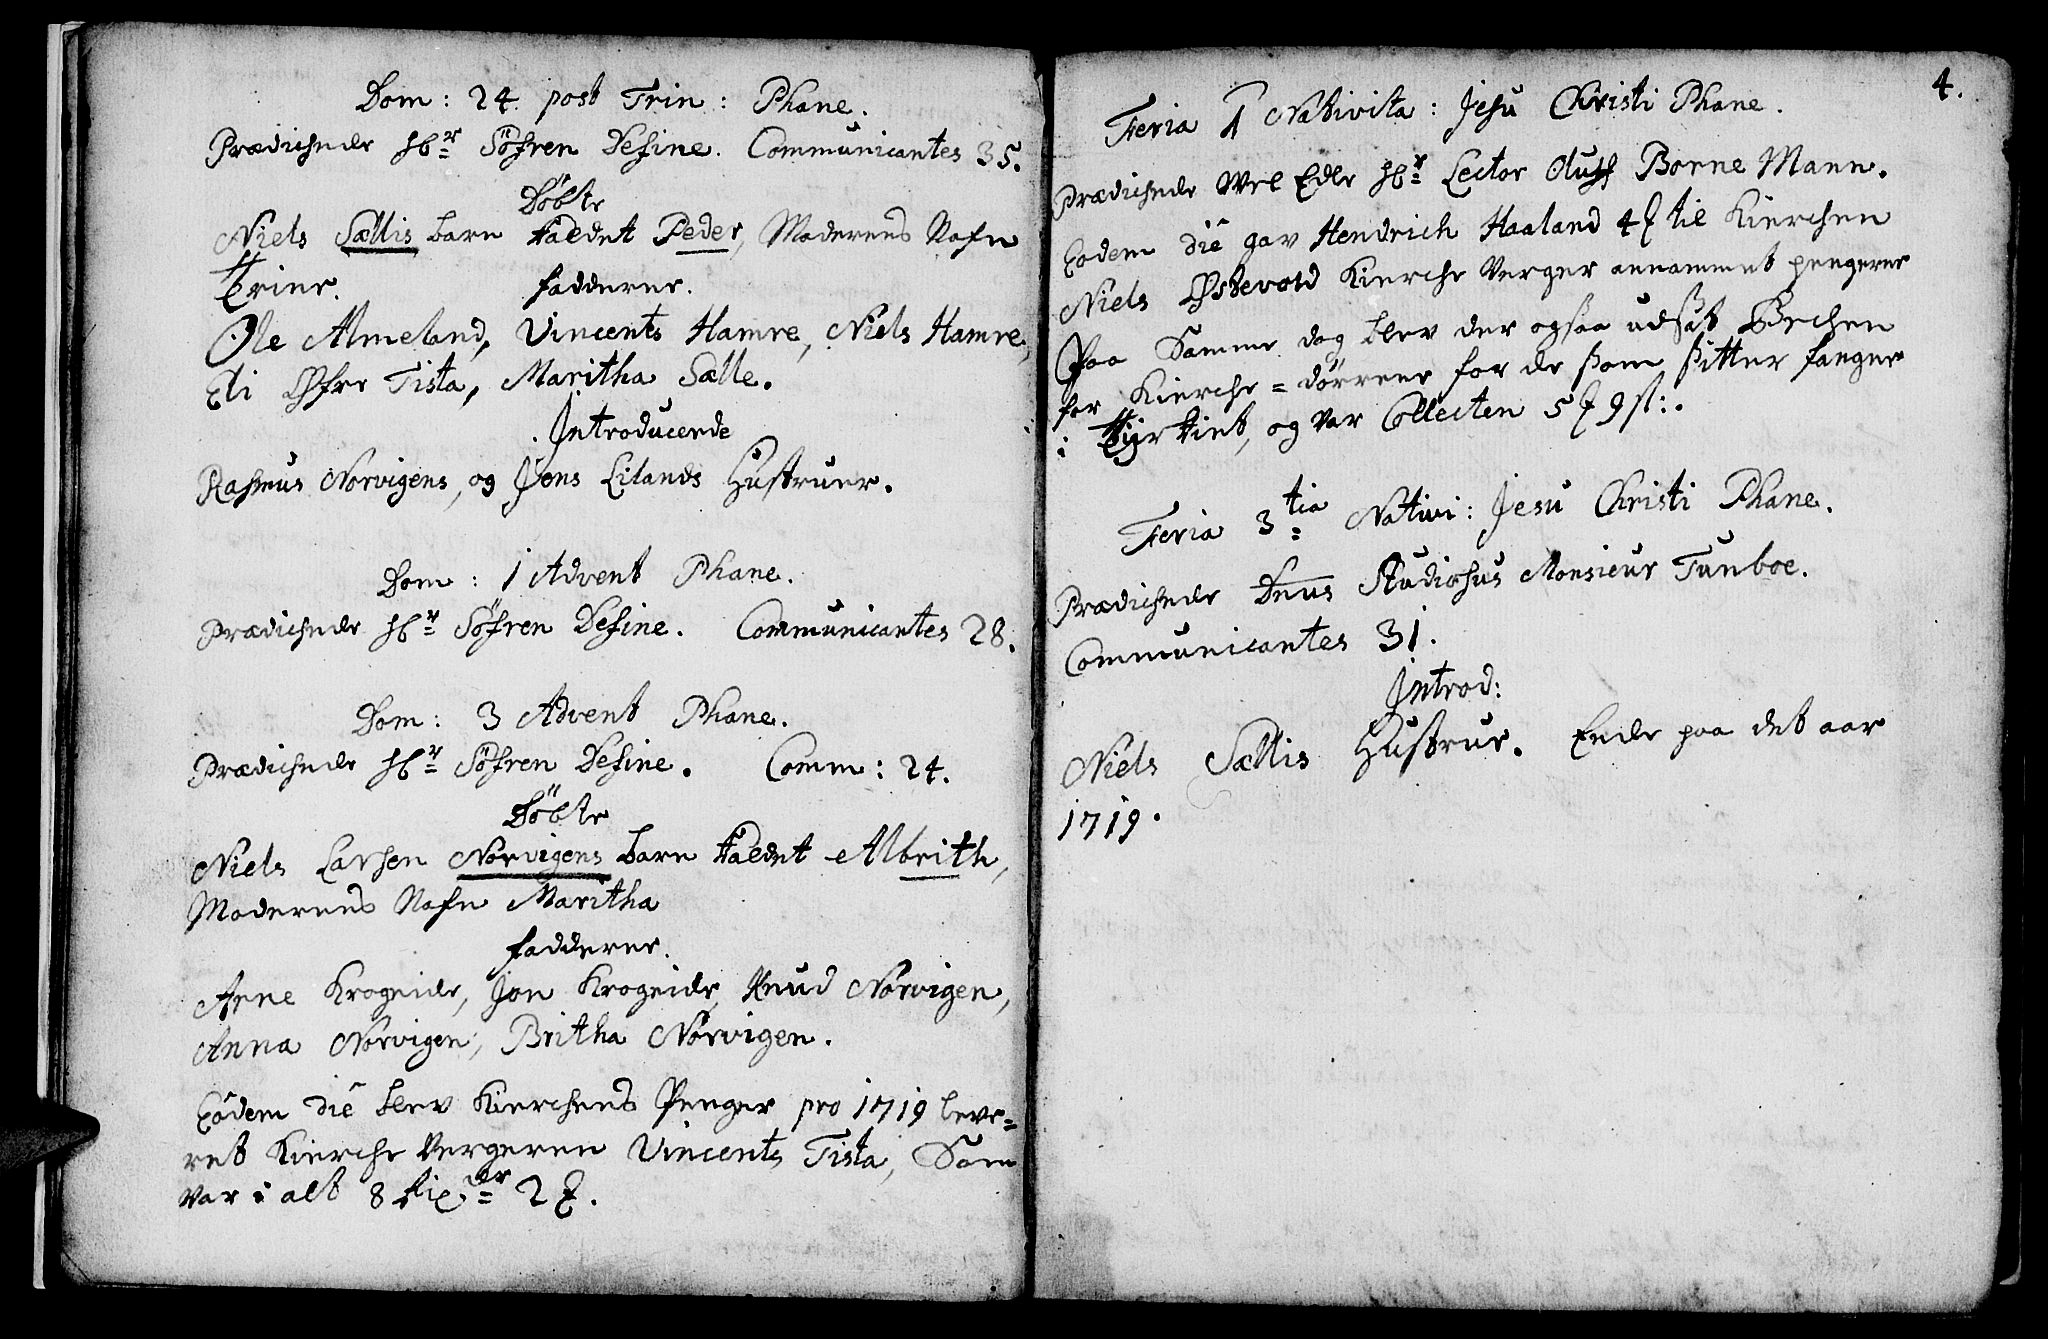 Dom: 24 post Trin: Phane.
Prædichede Hr. Söfren Desine. Communicantes 35.
Döbte
Niels Sættis barn kaldet Peder, Moderens Nafn
Trine.
fadderne.
Ole Almeland, Vincents Hamre, Niels Hamre,
Eli Øfre Tista, Maritha Sætte.
Introducerde
Rasmus Norvigens, og Jens Lilands Hustruer.
Dom: 1 Advent Phane.
Prædichede Hr. Söfren Desine. Communicantes 28.
Dom: 3 Advent Phane.
Prædichede Hr. Söfren Desine. Comm: 24.
Döbte
Niels Larsen Norvigens barn kaldet Albrith,
Moderens Nafn Maritha
fadderne.
Arne Krogeide, Jon Krogeide, Knud Norvigen,
Anna Norvigen, Britha Norvigen.
Eodem die blev Kierchens Penger pro 1719 leve=
ret Kierche Vergeren Vincents Tista, Som
var i alt 8 Rixdr 2
4.
Feria 1 Nativita: Jesu Christi Phane.
Prædichede Wel Edle Hr. Lector Oluff Borne Mann.
Eodem die gav Hendrich Haaland 4 til Kierchen
Niels Østevold Kierche Verger annammet pengene
Paa Samme dag blev der ogsaa udsat Becken
for Kierche=dörrene for de som sitter fanger
i Tÿrkiet, og var Collecten 5 9 s:.
Feria 3tia Nativi: Jesu Christi Phane.
Prædichede Dnus Studiosus Monsieur Tunboe.
Communicantes 31.
Introd:
Niels Sættis Hustrue. Ende paa det aar
1719.